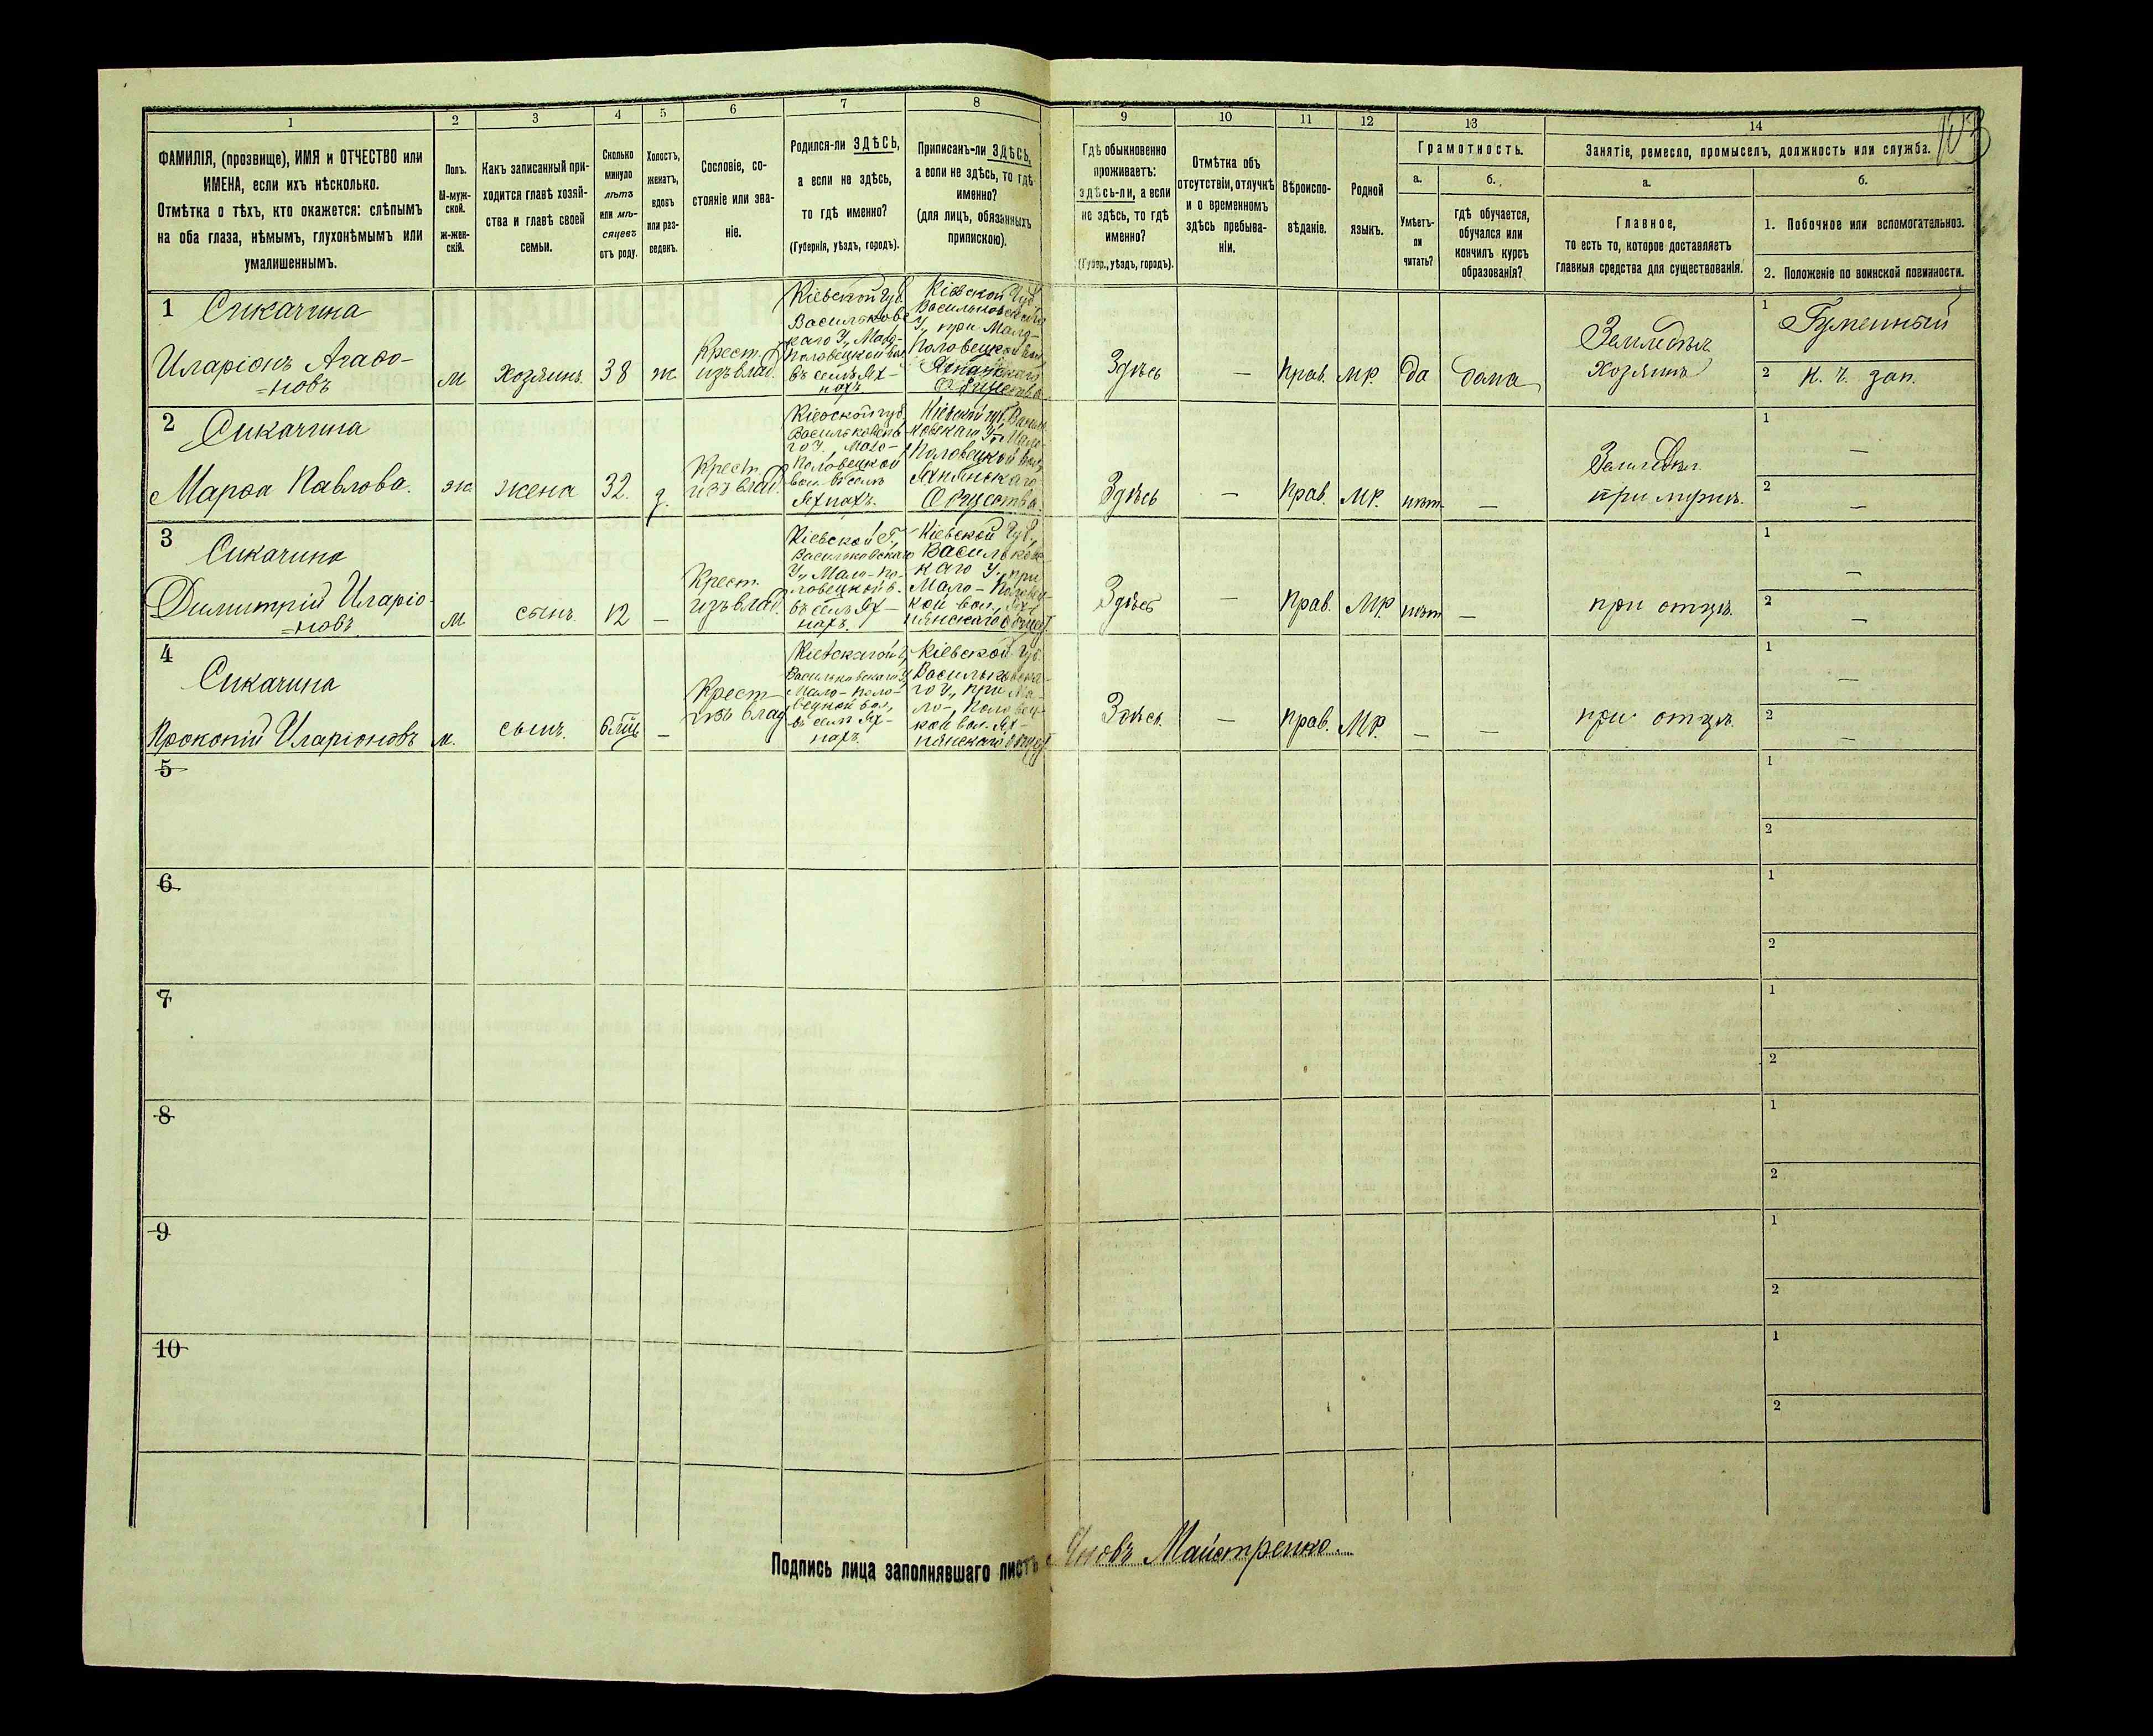 103
1
2
3
4
5
6
7
8
9
10
11
12
13
14
ФАМИЛІЯ, (прозвище), ИМЯ и ОТЧЕСТВО или
ИМЕНА, если ихъ нѣсколько.
Отмѣтка о тѣхъ, кто окажется: слѣпымъ
на оба глаза, нѣмымъ, глухонѣмымъ или
умалишеннымъ.
Полъ.
М-муж-
ской.
ж-жен-
скій.
Какъ записанный при-
ходится главѣ хозяй-
ства и главѣ своей
семьи.
Сколько
минуло
лѣтъ
или мѣ-
сяцевъ
отъ роду.
Холостъ,
женатъ,
вдовъ
или раз-
веденъ.
Сословіе, со-
стояніе или зва-
ніе.
Родился-ли ЗДѢСЬ,
а если не здѣсь,
то гдѣ именно?
(Губернія, уѣздъ, городъ).
Приписанъ-ли ЗДѢСЬ,
а если не здѣсь, то гдѣ
именно?
(для лицъ, обязанныхъ
припискою).
Гдѣ обыкновенно
проживаетъ:
здѣсь-ли, а если
не здѣсь, то гдѣ
именно?
(Губер., уѣздъ, городъ).
Отмѣтка объ
отсутствіи, отлучкѣ
и о временномъ
здѣсь пребыва-
ніи.
Вѣроиспо-
вѣданіе.
Родной
языкъ.
Грамотность.
а.
Умѣетъ-
ли
читать?
б.
гдѣ обучается,
обучался или
кончилъ курсъ
образованія?
Занятіе, ремесло, промыселъ, должность или служба.
а.
Главное,
то есть то, которое доставляетъ
главныя средства для существованія.
б.
1. Побочное или вспомогательное.
2. Положеніе по воинской повинности.
1 Сикачина
Иларіонъ Агаѳо-
=новъ
м
хозяинъ
38
ж
Крест.
изъ влад.
Кіевской Губ.
Васильковс
каго У., Мало-
Половецкой вол.
въ селѣ Ях-
нахъ
Кіевской Губ.
Васильковскаго
У., при Мало-
Половецкой вол.
Общества
Здѣсь
—
Прав.
МР.
да
дома
Земледѣл.
хозяинъ
1
Гуменный
2 Н. Ч. зап.
2 Сикачина
Марѳа Павлова.
ж
жена
32.
з.
Крест.
изъ влад.
Кіевской губ.
Васильковска
го У., Мало-
Половецкой
вол. въ селѣ
Яхнахъ.
Кіевской губ. Василь
ковскаго У. Мало-
Половецкой вол.
Яхнянскаго
Общества.
Здѣсь
—
Прав.
МР.
нѣт.
—
Земледѣл.
при мужѣ.
1
—
2
—
3 Сикачина
Димитрій Иларіо-
=новъ
м
сынъ.
12
—
Крест.
изъ влад.
Кіевской Г.,
Васильковскаго
У., Мало-По-
ловецкой в.
въ селѣ Ях-
нахъ.
Кіевской Губ.,
Васильковс
каго У., при
Мало-Половец-
кой вол., Ях-
нянскаго Общест.
Здѣсь
—
Прав.
МР.
нѣт
—
при отцѣ.
1
—
2
—
4 Сикачина
Прокопій Иларіоновъ
м.
сынъ.
6 мѣс
—
Крест
изъ влад
Васильковскаго У.,
Мало-Поло-
вецкой вол.,
въ селѣ Ях-
нахъ.
Кіевской Губ.
Васильковска-
го У., при Ма-
ло-Половец-
кой вол. Ях-
нянскаго Общест
Здѣсь
—
Прав.
МР.
—
—
при отцѣ.
1
—
2
—
5
1
2
6
1
2
7
1
2
8
1
2
9
1
2
10
1
2
Подпись лица заполнявшаго листъ Яковъ Майстренко.